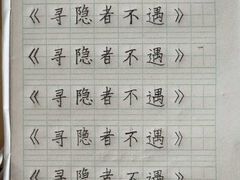 《寻隐者不遇》
《寻隐者不遇》
《寻隐者不遇》
《寻隐者不遇》
《寻隐者不遇》